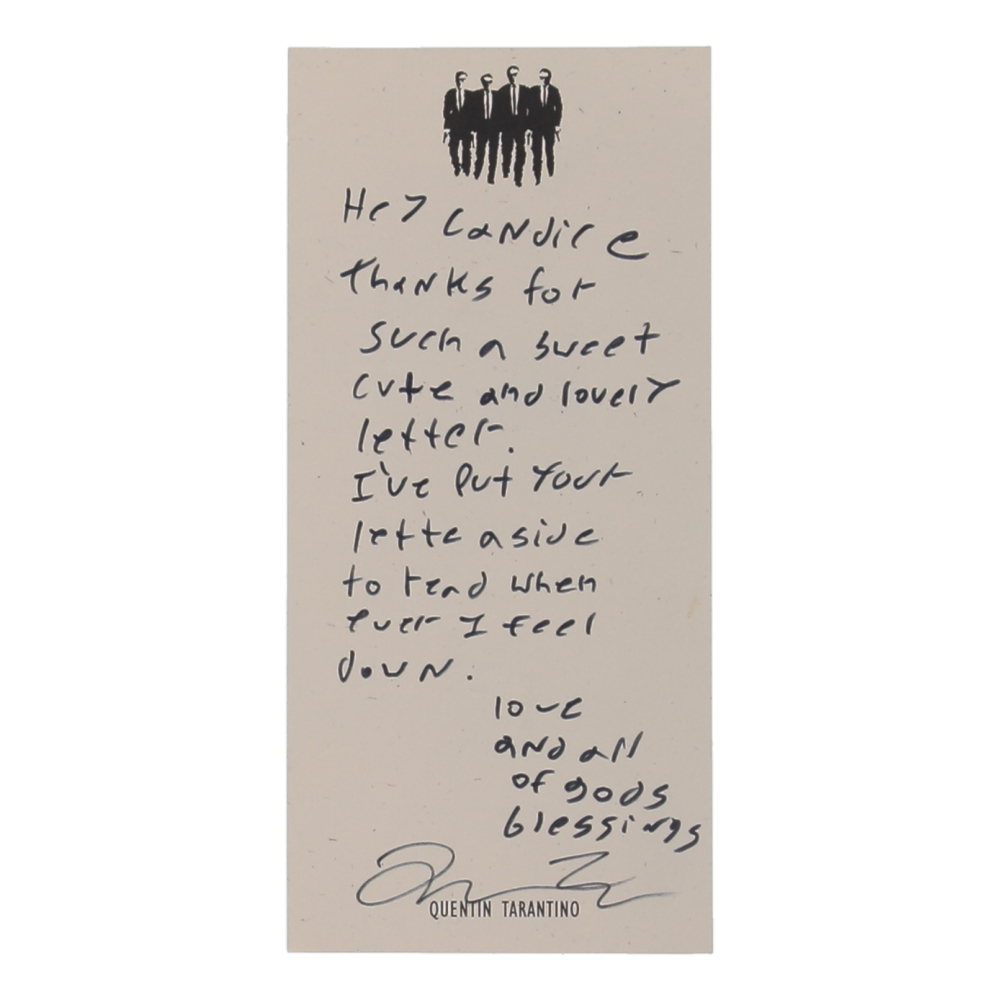 Hey Candice
thanks for
such a sweet
cute and lovely
letter.
I've put your
lette aside
to read when
ever I feel
down.
love
and all
of gods
blessings
QUENTIN TARANTINO